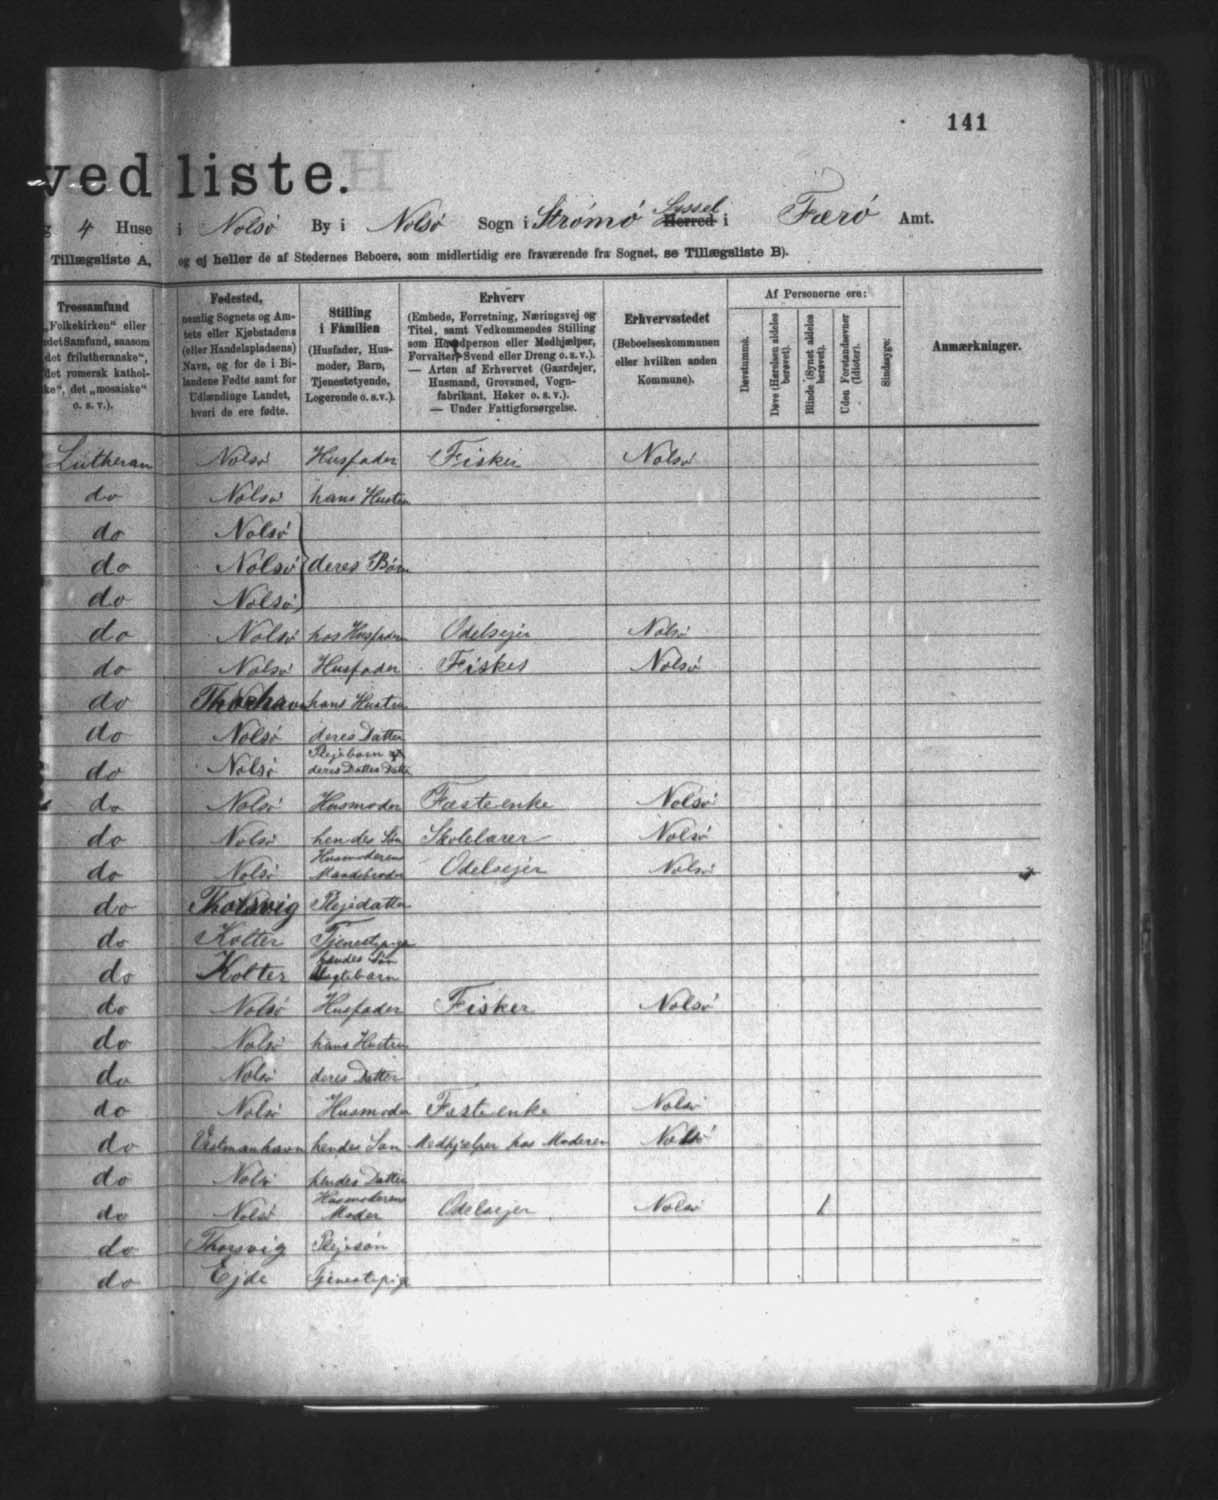 141
ved liste.
4 Huse i Nolsø By i Nolsø Sogn i Strømø Syssel Herred i Færø Amt.
Tillægsliste A, og ej heller de af Stedernes Beboere, som midlertidig ere fraværende fra Sognet, se Tillægsliste B).
Trossamfund
„Folkekirken“ eller
det Samfund, saasom
det frilutheranske“,
det romersk kathol-
ke“, det „mosaiske“
o. s. v.).
Fødested,
nemlig Sognets og Am-
tets eller Kjøbstadens
(eller Handelspladsens)
Navn, og for de i Bi-
landene Fødte samt for
Udlændinge Landet,
hvori de ere fødte.
Stilling
i Familien
(Husfader, Hus-
moder, Barn,
Tjenestetyende,
Logerende o. s. v.).
Erhverv
(Embede, Forretning, Næringsvej og
Titel, samt Vedkommendes Stilling
som Hovedperson eller Medhjælper,
Forvalter, Svend eller Dreng o. s. v.).
— Arten af Erhvervet (Gaardejer,
Husmand, Grovsmed, Vogn-
fabrikant, Høker o. s. v.).
— Under Fattigforsørgelse.
Erhvervsstedet
(Beboelseskommunen
eller hvilken anden
Kommune).
Af Personerne ere:
Døvstumme.
Døve (Hørelsen aldeles
berøvet).
Blinde (Synet aldeles
berøvet).
Uden Forstandsevner
(Idioter).
Sindssyge.
Anmærkninger.
Lutheran Nolsø Husfader Fisker Nolsø
do Nolsø hans Hustru
do Nolsø
do Nolsø deres Børn
do Nolsø
do Nolsø hos Husfaderen Odelsejer Nolsø
do Nolsø Husfader Fisker Nolsø
do Thorshavn hans Hustru
do Nolsø deres Datter
do Nolsø Plejebarn af
deres Datters Datter
do Nolsø Husmoder Fæsteenke Nolsø
do Nolsø hendes Søn Skolelærer Nolsø
do Nolsø Husmoderens
Mandsbroder Odelsejer Nolsø
do Thorsvig Plejedatter
do Kolter Tjenestepige
do Kolter hendes Søn
Slegtebarn
do Nolsø Husfader Fisker Nolsø
do Nolsø hans Hustru
do Nolsø deres Datter
do Nolsø Husmoder Fæsteenke Nolsø
do Vestmanhavn hendes Søn Medhjælper hos Moderen Nolsø
do Nolsø hendes Datter
do Nolsø Husmoderens
Moder Odelsejer Nolsø 1
do Thorsvig Plejesøn
do Ejde Tjenestepige